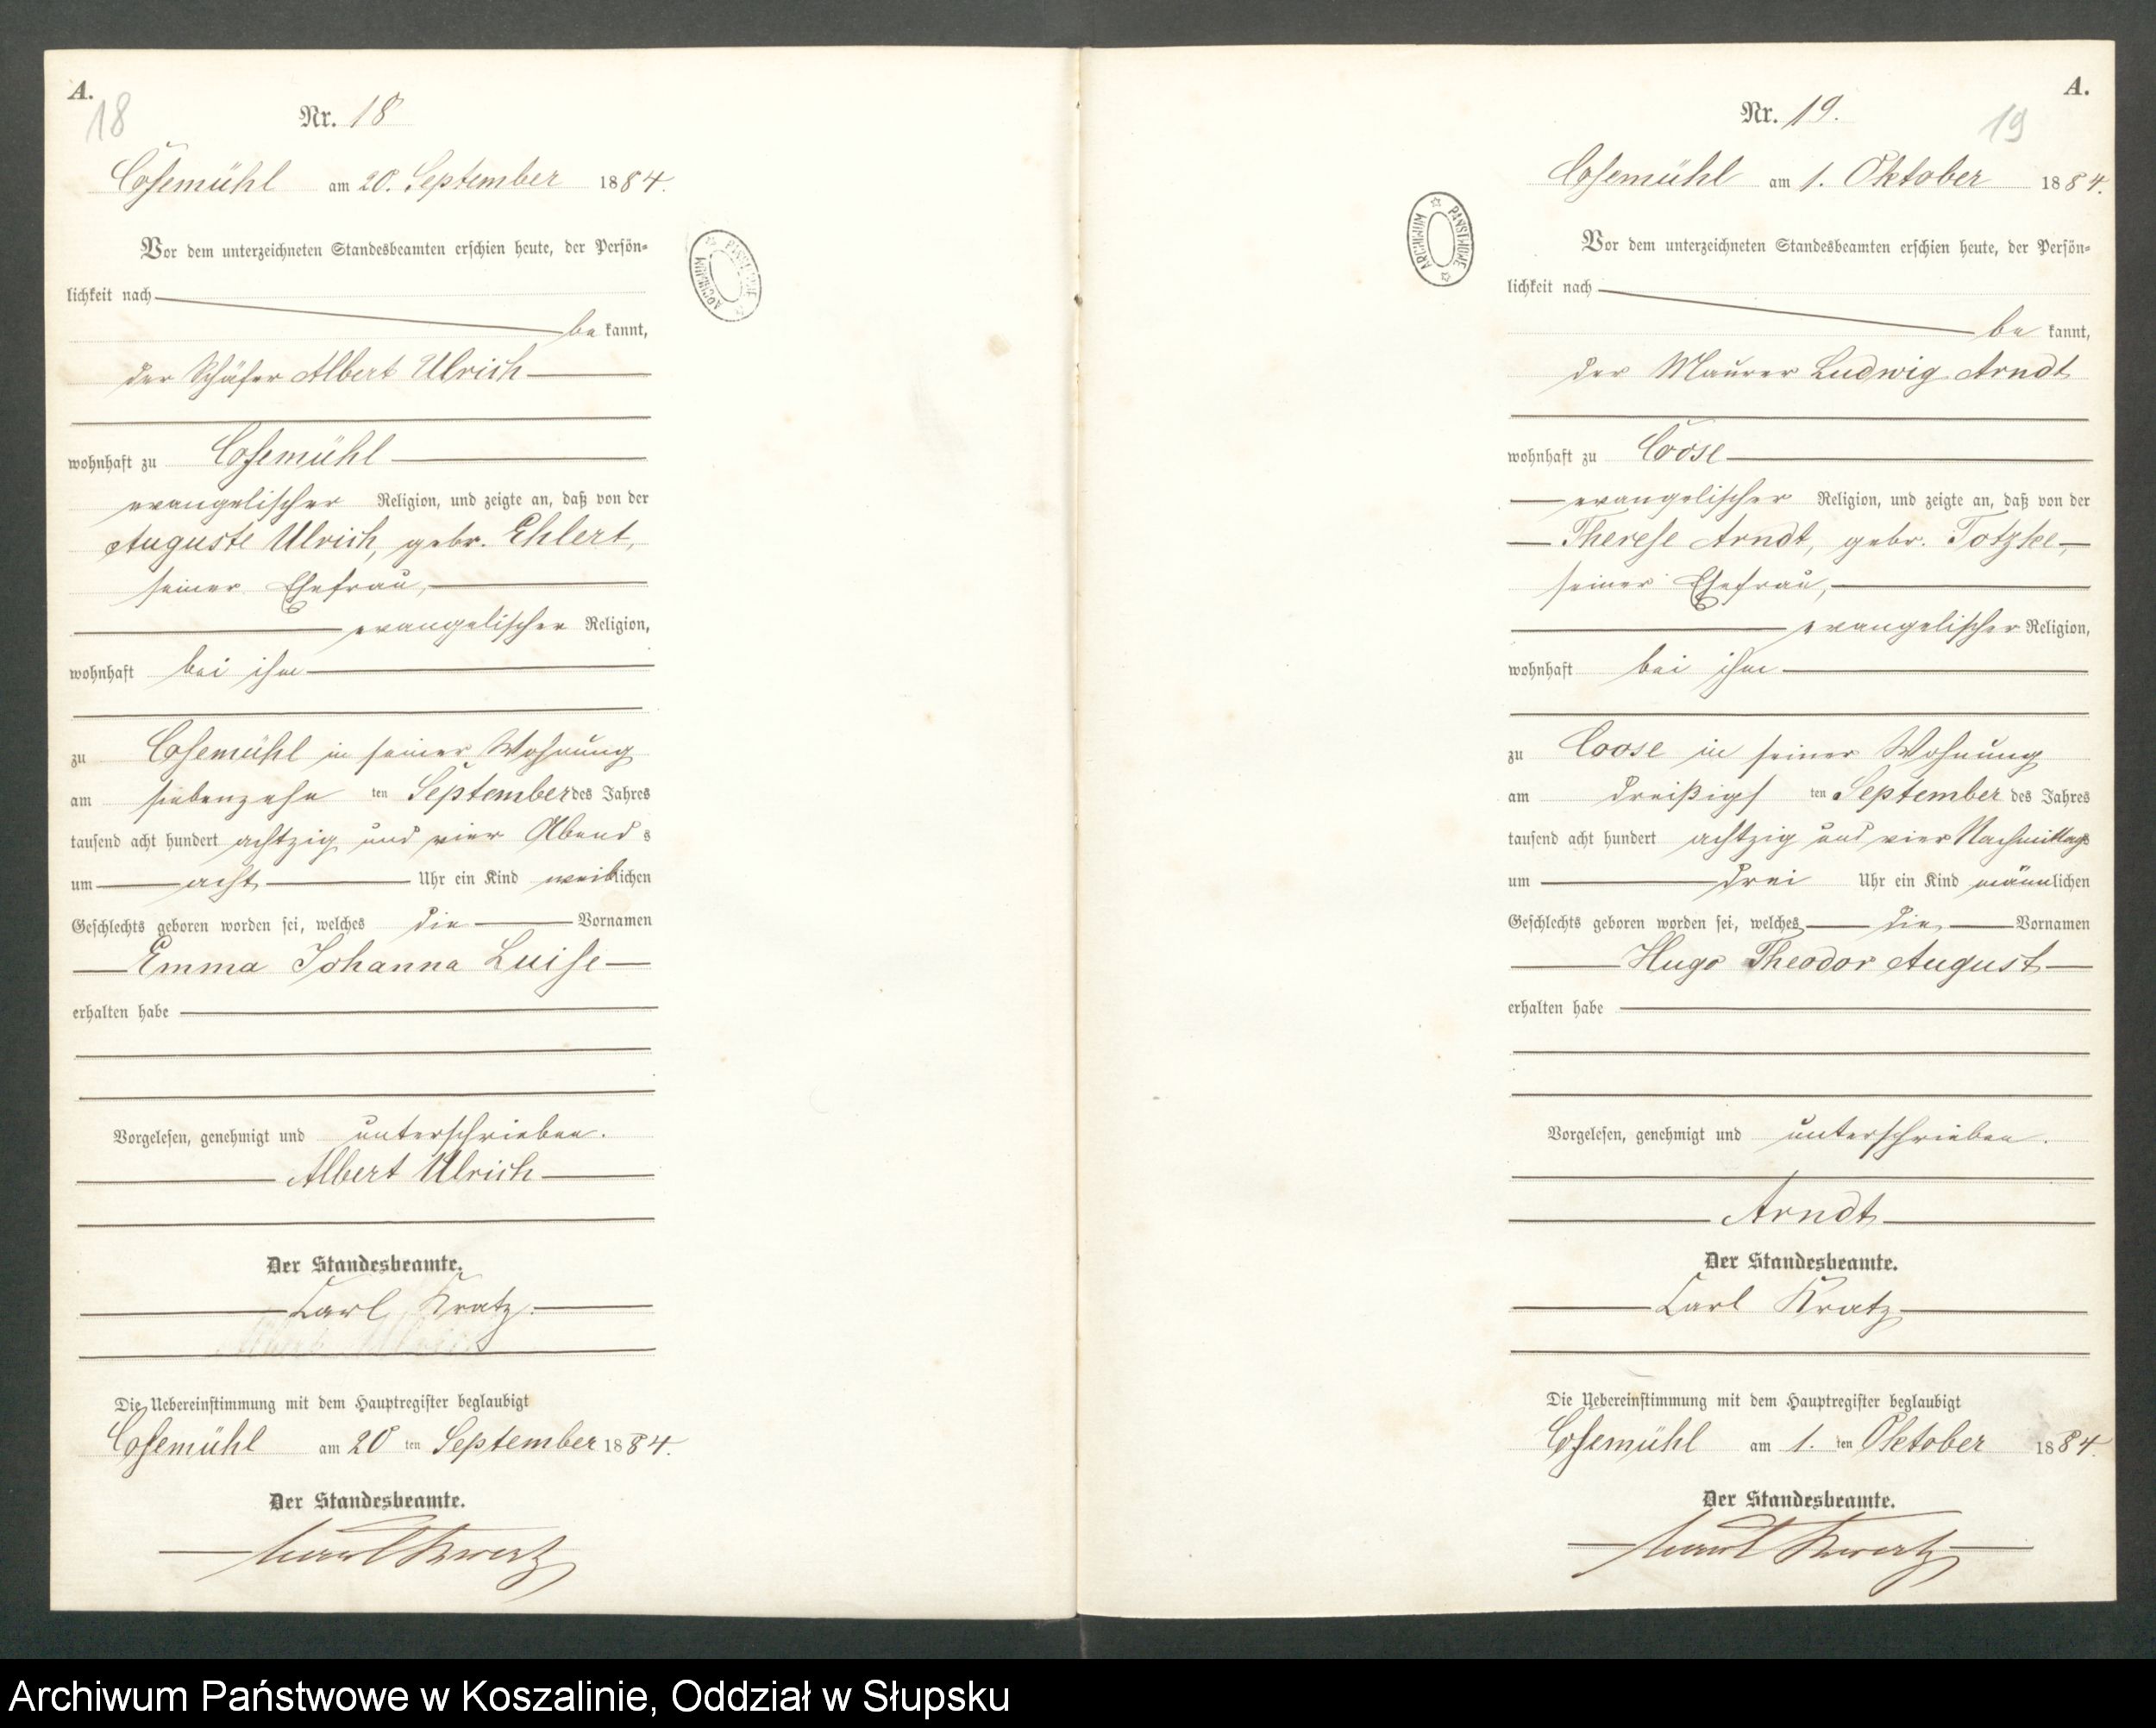 A.
18
Nr. 18
Cosemühl am 20. September 1884.
Vor dem unterzeichneten Standesbeamten erschien heute, der Persön-
lichkeit nach
be kannt,
der Schäfer Albert Ulrich
wohnhaft zu Cosemühl
evangelischer Religion, und zeigte an, daß von der
Auguste Ulrich, gebr. Ehlert,
seiner Ehefrau,
evangelischer Religion,
wohnhaft bei ihm
zu Cosemühl in seiner Wohnung
am siebenzehn ten September des Jahres
tausend acht hundert achtzig und vier Abend s
um acht Uhr ein Kind weiblichen
Geschlechts geboren worden sei, welches die Vornamen
Emma Johanna Luise
erhalten habe
Vorgelesen, genehmigt und unterschrieben.
Albert Ulrich
Der Standesbeamte.
Carl Kratz.
Die Uebereinstimmung mit dem Hauptregister beglaubigt
Cosemühl am 20 ten September 1884.
Der Standesbeamte.
Carl Kratz
ARCHIWUM PAŃSTWOWE
A.
19
Nr. 19.
Cosemühl am 1. Oktober 1884.
Vor dem unterzeichneten Standesbeamten erschien heute, der Persön-
lichkeit nach
be kannt,
der Maurer Ludwig Arndt
wohnhaft zu Coose
evangelischer Religion, und zeigte an, daß von der
Therese Arndt, gebr. Totzke,
seiner Ehefrau,
evangelischer Religion,
wohnhaft bei ihm
zu Coose in seiner Wohnung
am dreißigs ten September des Jahres
tausend acht hundert achtzig und vier Nachmittags
um drei Uhr ein Kind männlichen
Geschlechts geboren worden sei, welches die Vornamen
Hugo Theodor August
erhalten habe
Vorgelesen, genehmigt und unterschrieben.
Arndt
Der Standesbeamte.
Carl Kratz
Die Uebereinstimmung mit dem Hauptregister beglaubigt
Cosemühl am 1. ten Oktober 1884.
Der Standesbeamte.
Carl Kratz
ARCHIWUM PAŃSTWOWE
Archiwum Państwowe w Koszalinie, Oddział w Słupsku